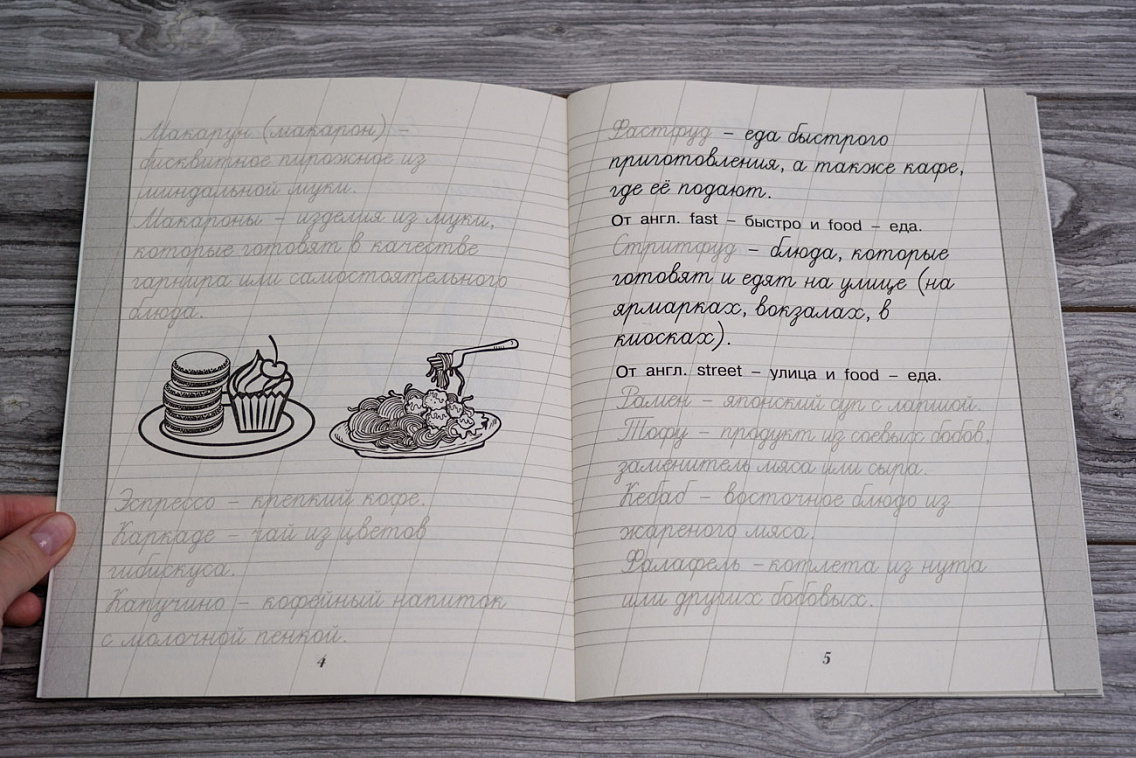 Макарун (макарон) –
бисквитное пирожное из
миндальной муки.
Макароны – изделия из муки,
которые готовят в качестве
гарнира или самостоятельного
блюда.
Эспрессо – крепкий кофе.
Каркаде – чай из цветов
гибискуса.
Капучино – кофейный напиток
с молочной пенкой.
4
Фастфуд – еда быстрого
приготовления, а также кафе,
где её подают.
От англ. fast – быстро и food – еда.
Стритфуд – блюда, которые
готовят и едят на улице (на
ярмарках, вокзалах, в
киосках).
От англ. street – улица и food – еда.
Рамен – японский суп с лапшой.
Тофу – продукт из соевых бобов,
заменитель мяса или сыра.
Кебаб – восточное блюдо из
жареного мяса.
Фалафель – котлета из нута
или других бобовых.
5